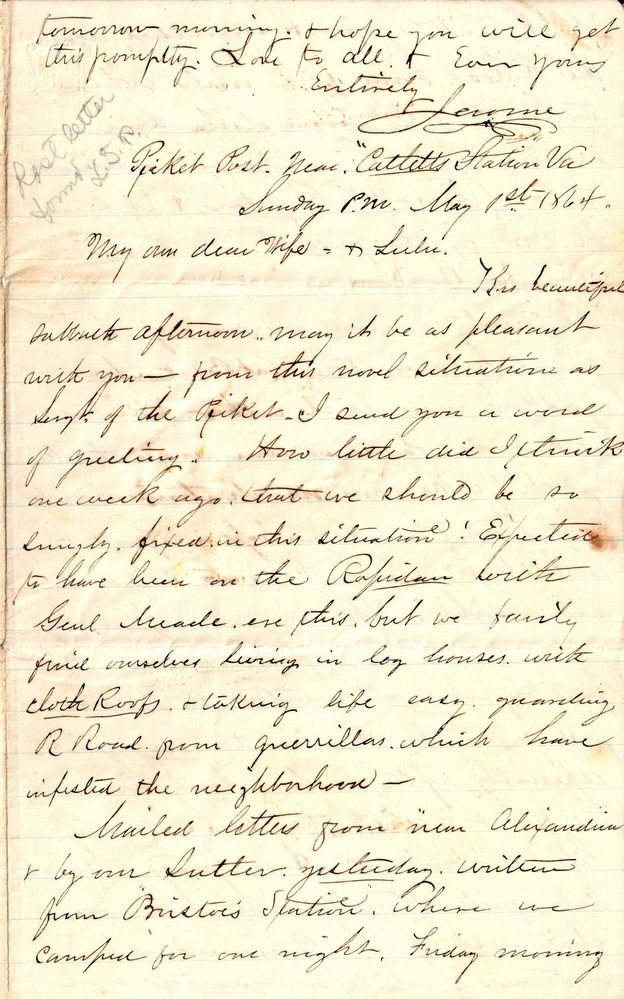 tomorrow morning. & hope you will get
this promptly. Love to all. & Ever yours
Entirely
Jerome
Last letter
found L.S.P.
Picket Post. Near. "Catletts Station Va
Sunday P.M. May 1st 1864.
My own dear Wife = & Lulu.
This beautiful
sabbath afternoon.. may it be as pleasant
with you — from this novel situation as
Sergt of the Picket - I send you a word
of greeting. How little did I think
one week ago. that we should be so
snugly. fixed in this situation! Expected
to have been on the Rapidan with
Genl Meade. ere this. but we fairly
find ourselves living in log houses. with
cloth Roofs. & taking life easy. guarding
R Road. from guerrillas. which have
infested the neighborhood —
Mailed letters from near Alexandria
& by our Sutler. yesterday. written
from "Bristoe's Station". where we
camped for one night. Friday morning